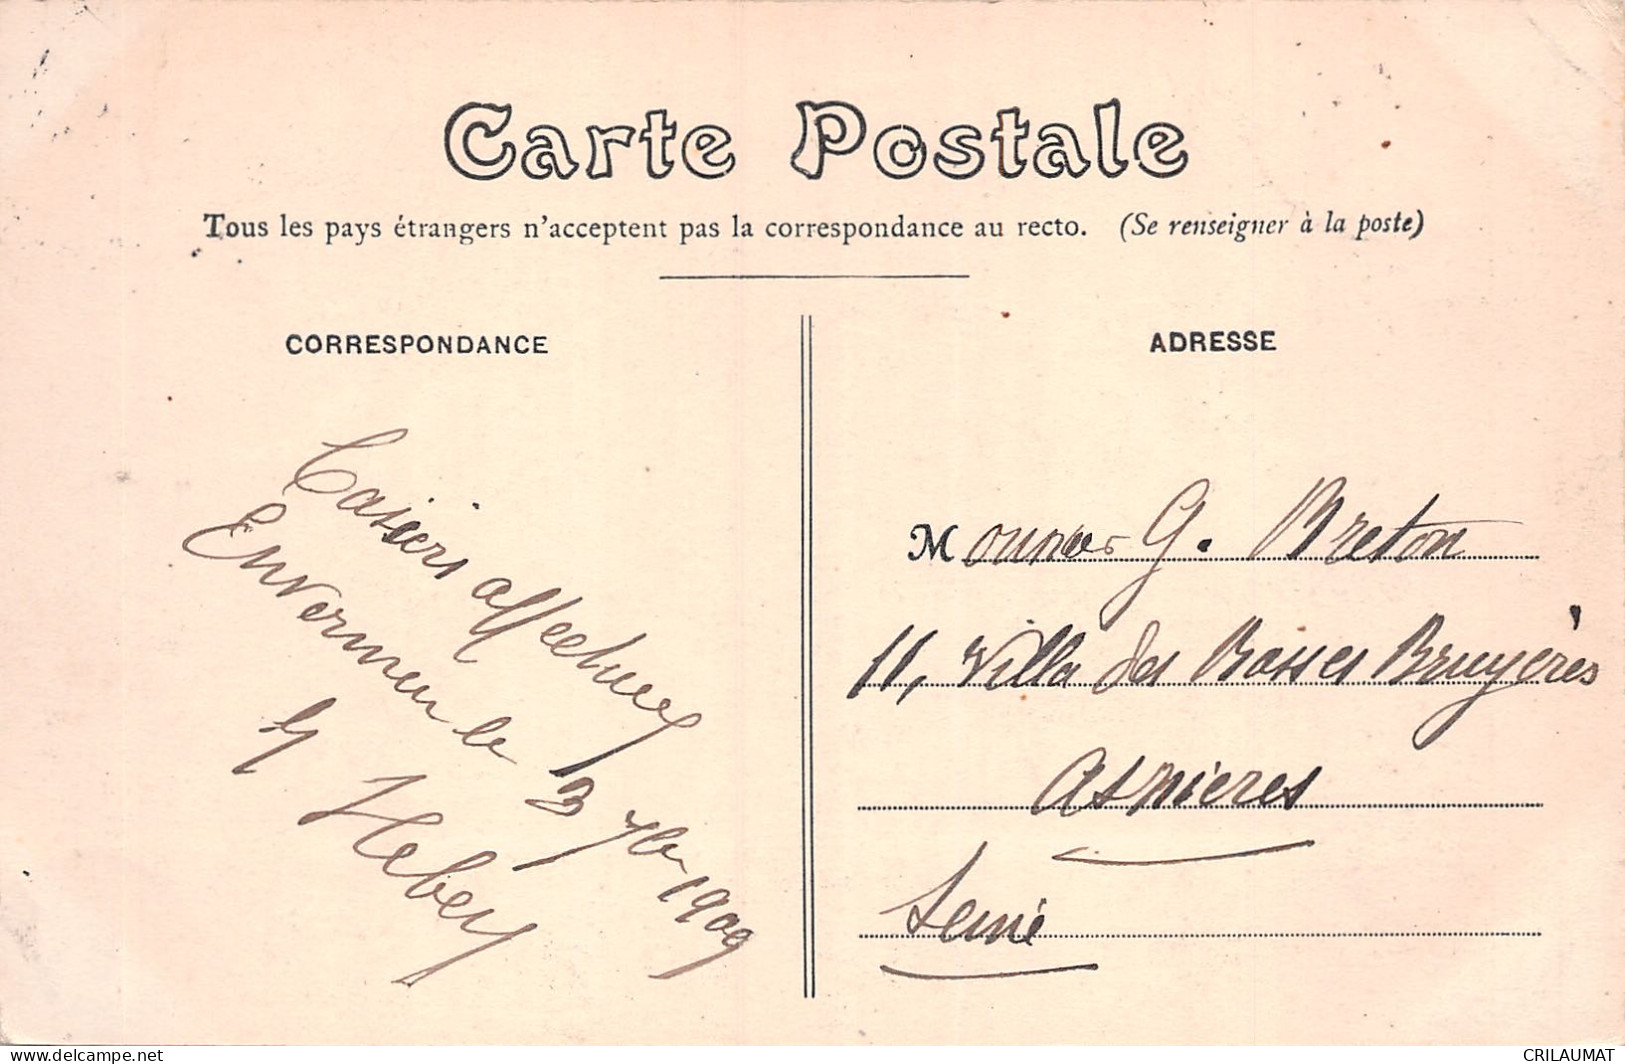 Carte Postale
Tous les pays étrangers n'acceptent pas la correspondance au recto. (Se renseigner à la poste)
CORRESPONDANCE
affectueux
Envermeu le 3 7bre 1909
Hebery
ADRESSE
Monsieur G. Breton
11, Villa des Basses Bruyères
Asnieres
Seine
delcampe.net
CRILAUMAT